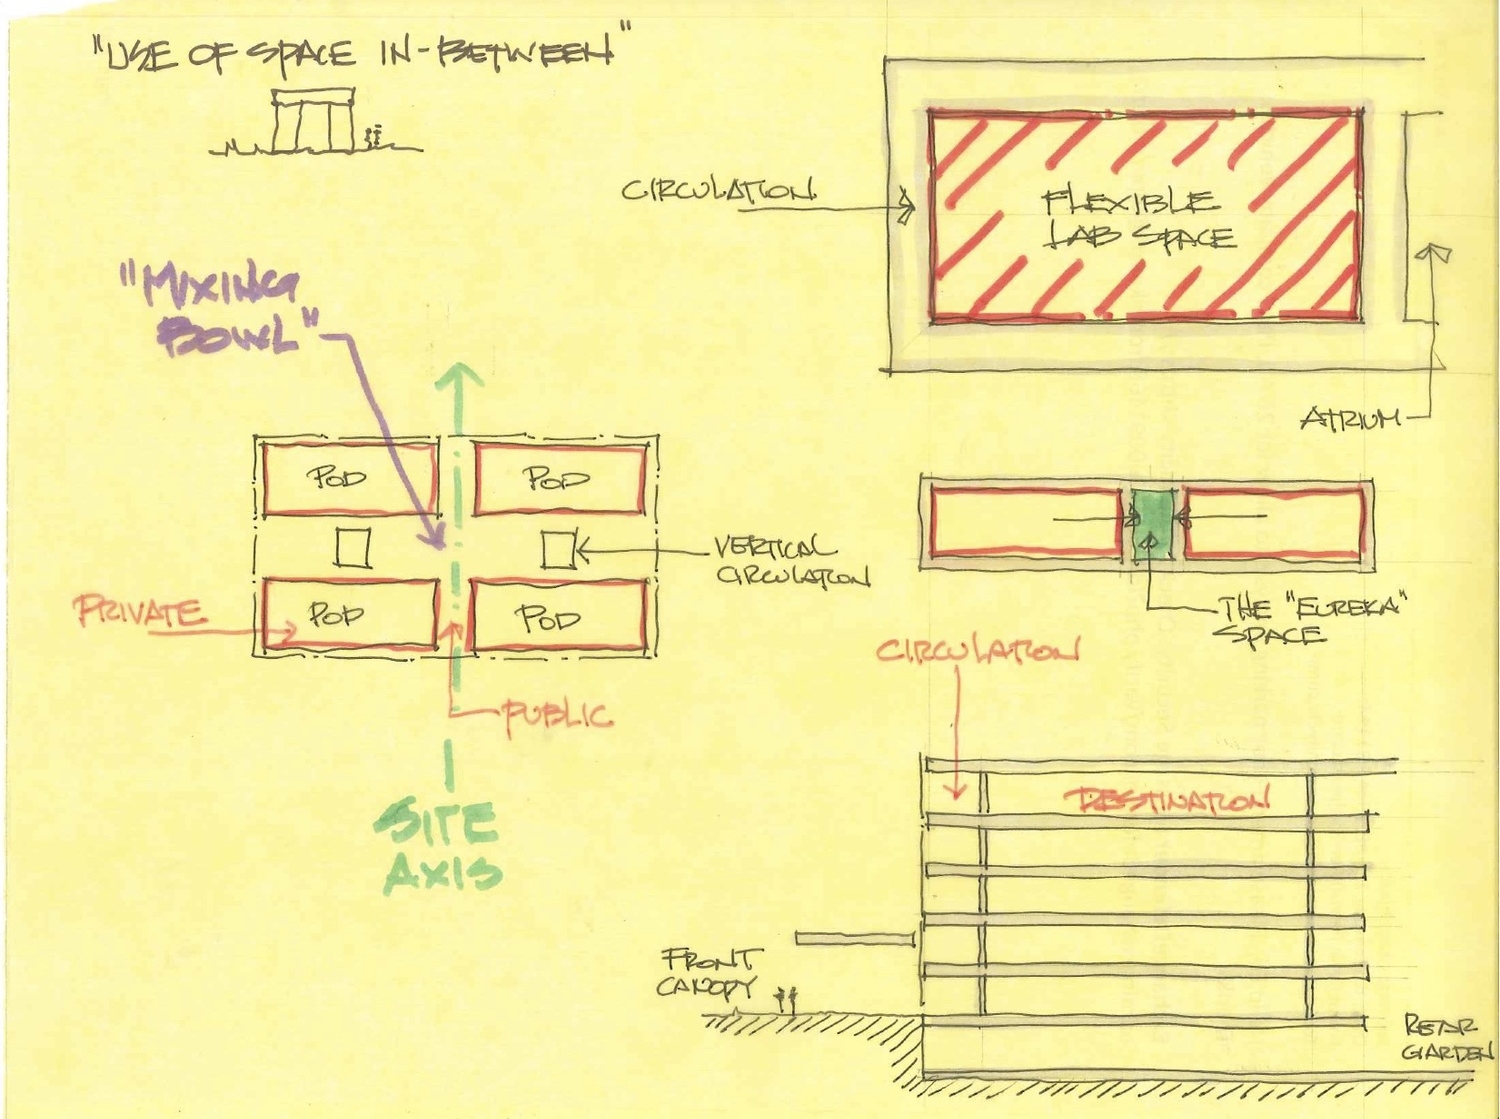 "USE OF SPACE IN-BETWEEN"
CIRCULATION
FLEXIBLE
LAB SPACE
ATRIUM
"MIXING
BOWL"
POD
POD
POD
POD
VERTICAL
CIRCULATION
PRIVATE
PUBLIC
SITE
AXIS
THE "EUREKA"
SPACE
CIRCULATION
DESTINATION
FRONT
CANOPY
REAR
GARDEN